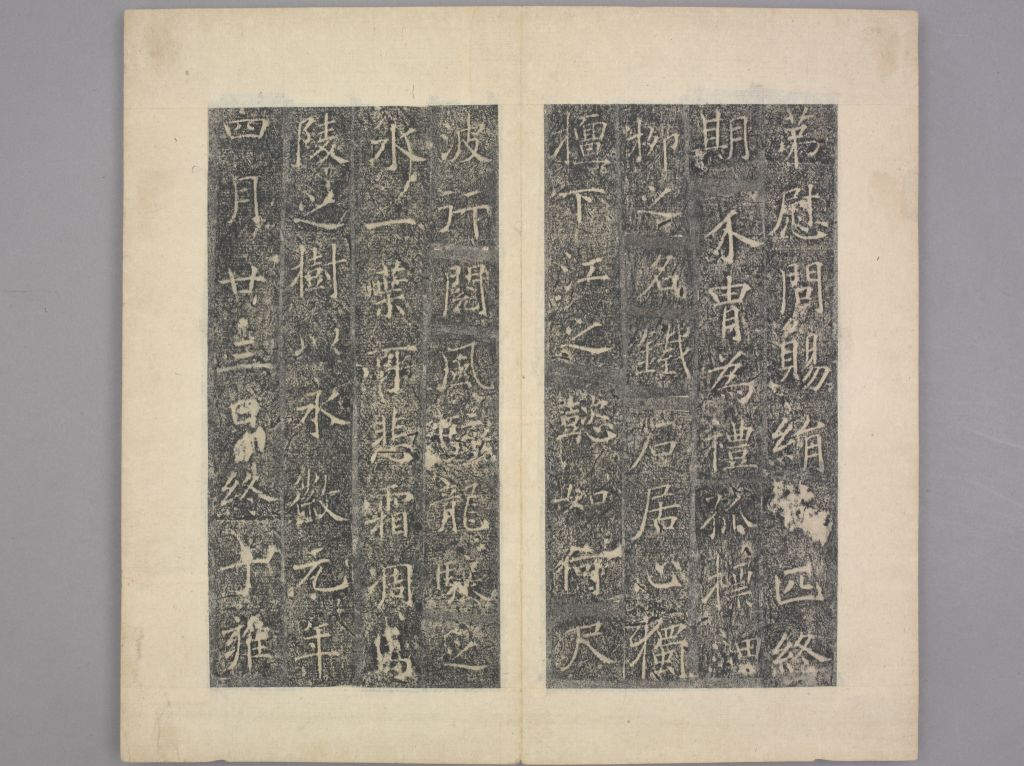 弟慰問賜絹 匹終
期不胄為禮 操
柳之名鐵石居心獨
檀下江之懿如何尺
波行閱風 龍 之
水一葉可悲霜凋馬
陵之樹以永徽元年
四月廿三日 終于雍